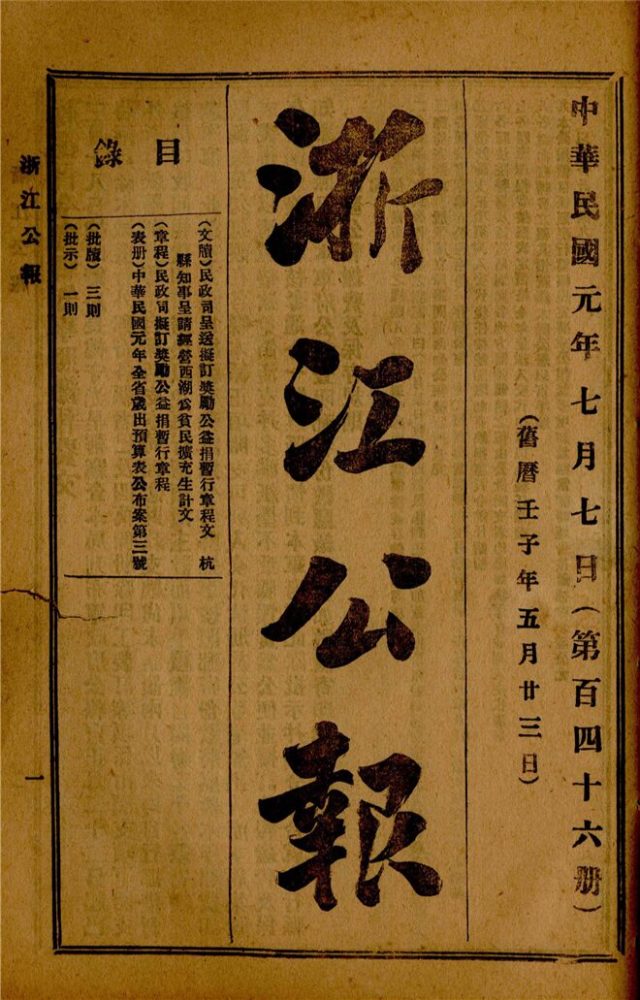 中華民國元年七月七日(第百四十六册)
(舊曆壬子年五月廿三日)
浙江公報
目錄
(文牘)民政司呈送擬訂獎勵公益捐暫行章程文 杭
縣知事呈請經營西湖爲貧民擴充生計文
(章程)民政司擬訂獎勵公益捐暫行章程
(表册)中華民國元年全省歲出預算表公布案第三號
(批牘)三則
(批示)一則
浙江公報
一